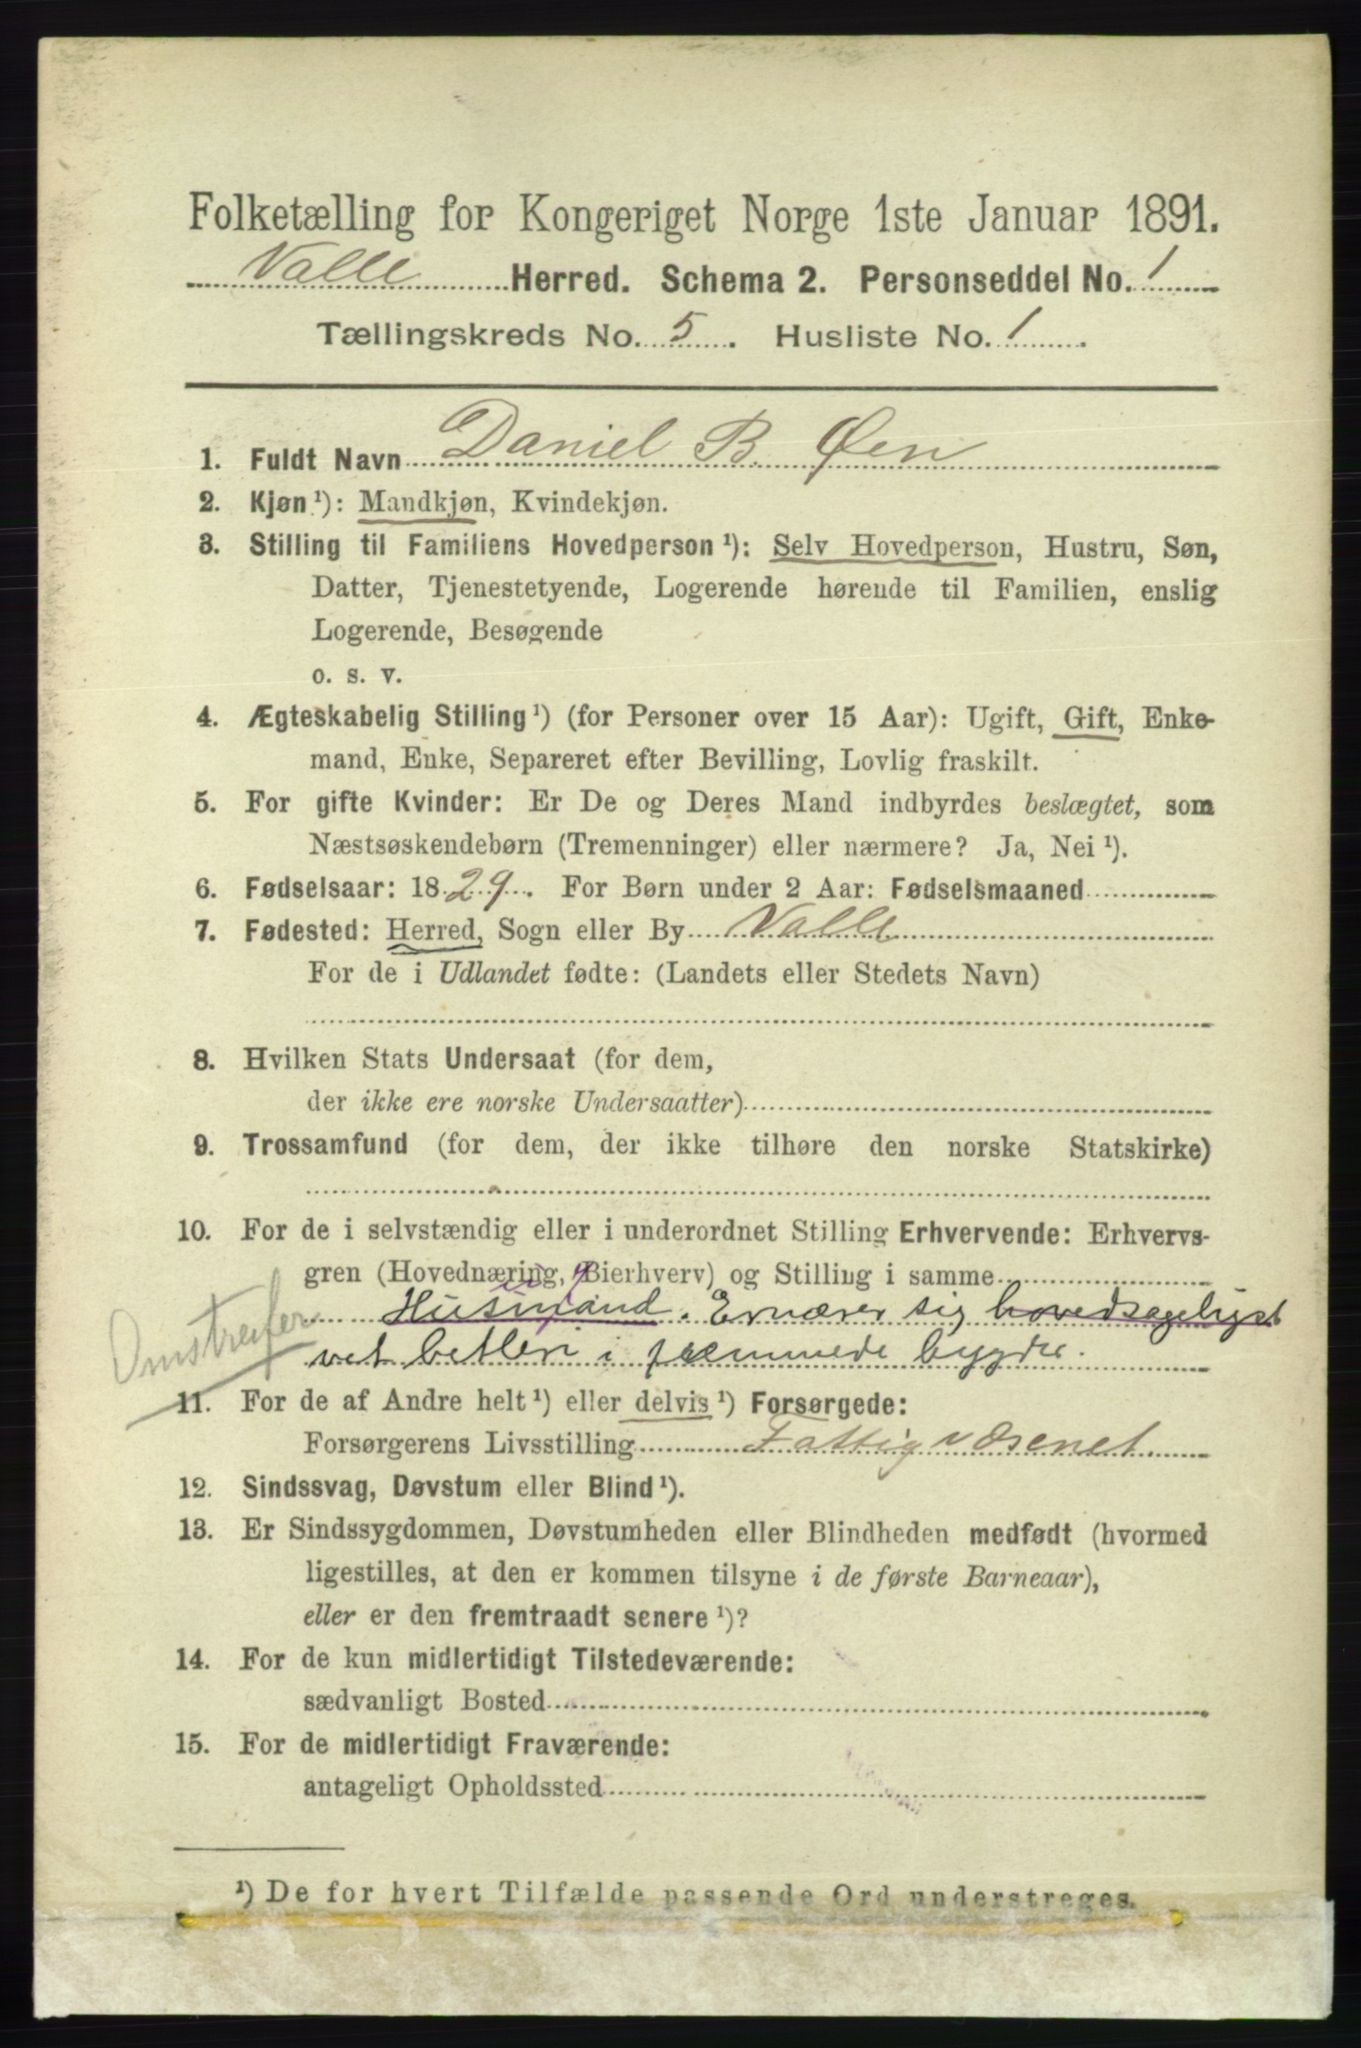 Folketælling for Kongeriget Norge 1ste Januar 1891.
Valle Herred. Schema 2. Personseddel No. 1
Tællingskreds No. 5. Husliste No. 1.
1. Fuldt Navn Daniel B. Øen
2. Kjøn ¹): Mandkjøn, Kvindekjøn.
3. Stilling til Familiens Hovedperson ¹): Selv Hovedperson, Hustru, Søn,
Datter, Tjenestetyende, Logerende hørende til Familien, enslig
Logerende, Besøgende
o. s. v.
4. Ægteskabelig Stilling ¹) (for Personer over 15 Aar): Ugift, Gift, Enke-
mand, Enke, Separeret efter Bevilling, Lovlig fraskilt.
5. For gifte Kvinder: Er De og Deres Mand indbyrdes beslægtet, som
Næstsøskendebørn (Tremenninger) eller nærmere? Ja, Nei ¹).
6. Fødselsaar: 1829. For Børn under 2 Aar: Fødselsmaaned
7. Fødested: Herred, Sogn eller By Valle
For de i Udlandet fødte: (Landets eller Stedets Navn)
8. Hvilken Stats Undersaat (for dem,
der ikke ere norske Undersaatter)
9. Trossamfund (for dem, der ikke tilhøre den norske Statskirke)
10. For de i selvstændig eller i underordnet Stilling Erhvervende: Erhvervs-
gren (Hovednæring, Bierhverv) og Stilling i samme
Husmand. Ernærer sig hovedsageligst
Omstreifer
vet betleri i fremmede bygder.
11. For de af Andre helt ¹) eller delvis ¹) Forsørgede:
Forsørgerens Livsstilling Fattigvæsenet.
12. Sindssvag, Døvstum eller Blind ¹).
13. Er Sindssygdommen, Døvstumheden eller Blindheden medfødt (hvormed
ligestilles, at den er kommen tilsyne i de første Barneaar),
eller er den fremtraadt senere ¹)?
14. For de kun midlertidigt Tilstedeværende:
sædvanligt Bosted
15. For de midlertidigt Fraværende:
antageligt Opholdssted
¹) De for hvert Tilfælde passende Ord understreges.